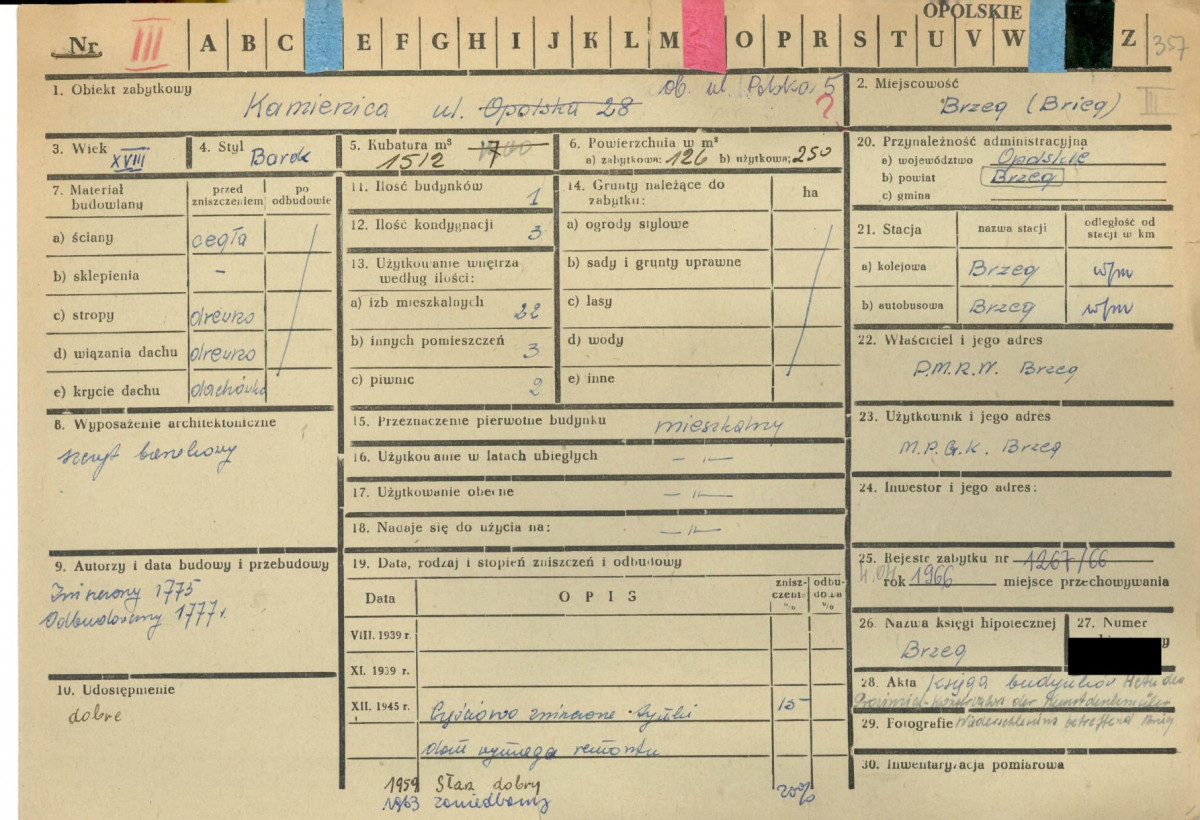 OPOLSKIE
Nr III A B C E F G H I J K L M O P R S T U V W Z 357
1. Obiekt zabytkowy
Kamienica ul. Opolska 28 ob. ul. Polska 5 ?
2. Miejscowość
Brzeg (Brieg) III
3. Wiek XVIII
4. Styl Barok
5. Kubatura m³
1512
6. Powierzchnia w m²
a) zabytkowa: 126 b) użytkowa: 250
7. Materiał budowlany
przed zniszczeniem
po odbudowie
a) ściany cegła
b) sklepienia –
c) stropy drewno
d) wiązania dachu drewno
e) krycie dachu dachówka
8. Wyposażenie architektoniczne
szczyt barokowy
9. Autorzy i data budowy i przebudowy
Zniszczony 1775
Odbudowany 1777 r.
10. Udostępnienie
dobre
11. Ilość budynków 1
12. Ilość kondygnacji 3
13. Użytkowanie wnętrza
według ilości:
a) izb mieszkalnych 22
b) innych pomieszczeń 3
c) piwnic 2
14. Grunty należące do
zabytku:
ha
a) ogrody stylowe
b) sady i grunty uprawne
c) lasy
d) wody
e) inne
15. Przeznaczenie pierwotne budynku mieszkalny
16. Użytkowanie w latach ubiegłych – " –
17. Użytkowanie obecne – " –
18. Nadaje się do użycia na: – " –
19. Data, rodzaj i stopień zniszczeń i odbudowy
Data OPIS zniszczenia % odbudowa %
VIII. 1939 r.
XI. 1939 r.
XII. 1945 r. Częściowo zniszczone tynki 15
dom wymaga remontu
1959 Stan dobry
1963 zaniedbany 20%
20. Przynależność administracyjna
a) województwo Opolskie
b) powiat Brzeg
c) gmina
21. Stacja
nazwa stacji
odległość od stacji w km
a) kolejowa Brzeg w/m
b) autobusowa Brzeg w/m
22. Właściciel i jego adres
P.M.R.N. Brzeg
23. Użytkownik i jego adres
M.P.G.K. Brzeg
24. Inwestor i jego adres:
25. Rejestr zabytku nr 1267/66
4.04. rok 1966 miejsce przechowywania
26. Nazwa księgi hipotecznej
Brzeg
27. Numer
28. Akta Księga budynków
der Kunstdenkmäler
29. Fotografie Niederschlesiens betreffend Brieg
30. Inwentaryzacja pomiarowa